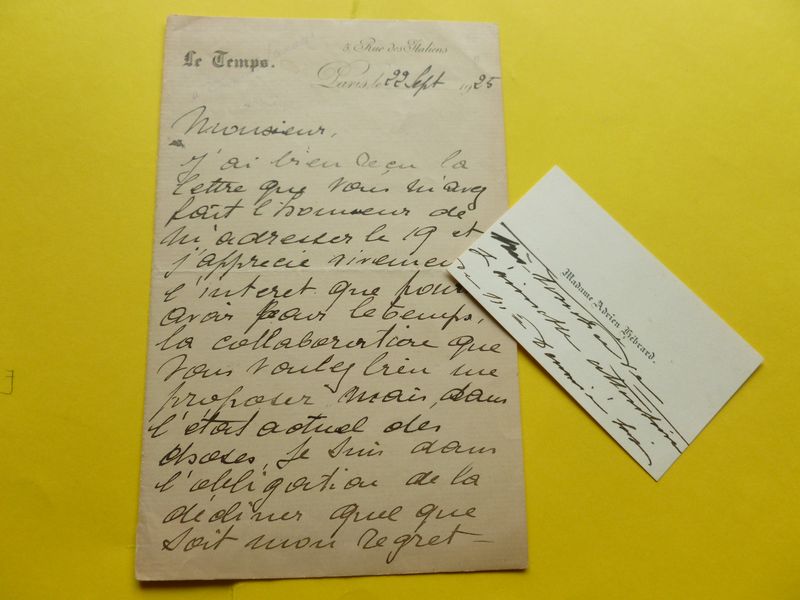 Le Temps.
5, Rue des Italiens
Paris, le 22 Sept 1925
Monsieur,
J'ai bien reçu la
lettre que vous m'avez
fait l'honneur de
m'adresser le 19 et
j'apprecie vivement
l'interet que pour
avoir pour le temps,
la collaboration que
vous voulez bien me
proposer mais, dans
l'état actuel des
choses, je suis dans
l'obligation de la
décliner quel que
soit mon regret -
Madame Adrien Hébrard.
Très touchée de